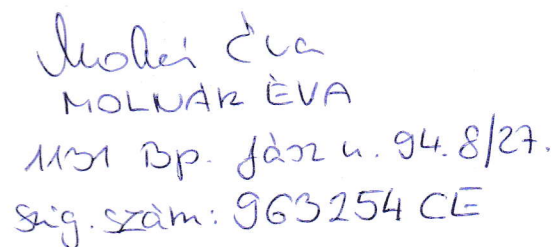 Molnár Éva
MOLNÁR ÉVA
1131 Bp. Jász u. 94. 8/27.
Szig. szám: 963254 CE